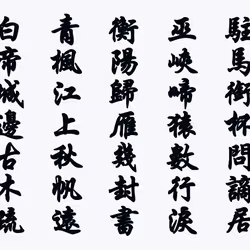 駐馬銜杯問謫居
巫峽啼猿數行淚
衡陽歸雁幾封書
青楓江上秋帆遠
白帝城邊古木疏